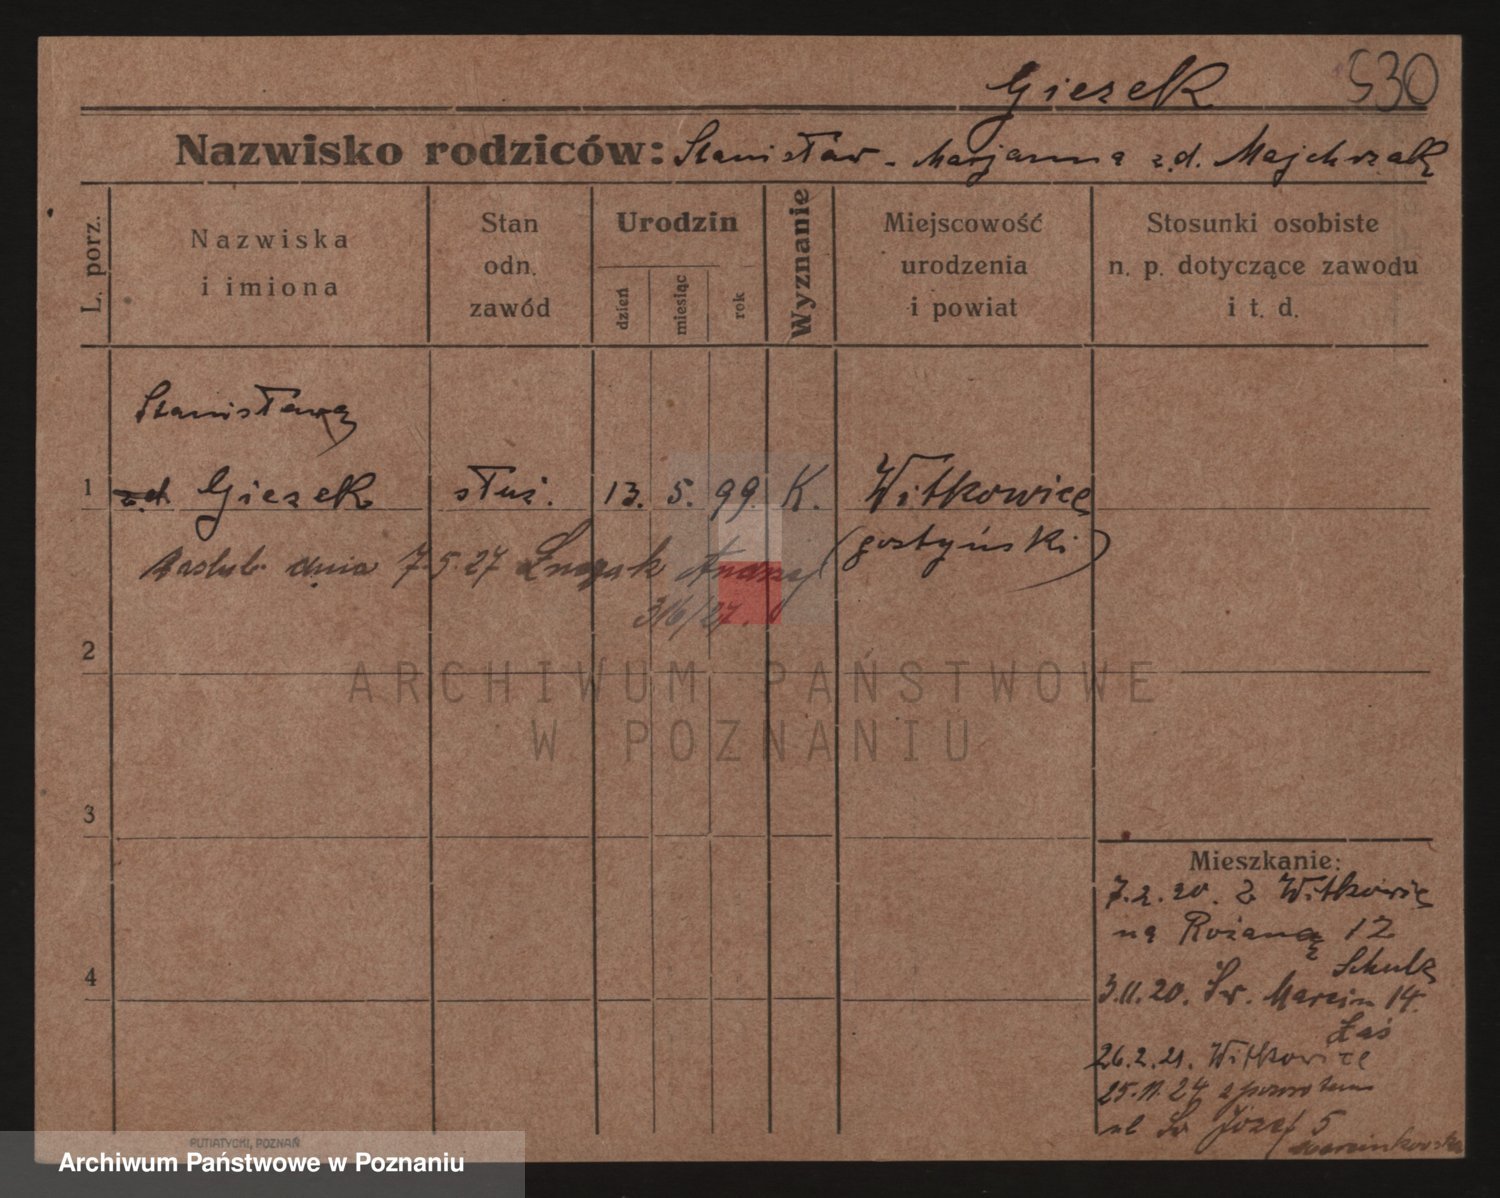 Giezek 530
Nazwisko rodziców: Stanisław - Marjanna z.d. Majchrzak
L. porz.
Nazwiska
i imiona
Stan
odn.
zawód
Urodzin
dzień
miesiąc
rok
Wyznanie
Miejscowość
urodzenia
i powiat
Stosunki osobiste
n. p. dotyczące zawodu
i t. d.
Stanisława
1 z.d. Giezek służ. 13. 5. 99. K. Witkowice
(gostyński)
zaślub. dnia 7.5.27
316/27.
2
ARCHIWUM PAŃSTWOWE
W POZNANIU
3
4
Mieszkanie:
7.2.20. z Witkowic
na Różana 12
3.11.20. Św. Marcin 14.
26.2.21. Witkowice
25.11.24 z powrotem
ul Św Józef 5
PUTIATYCKI, POZNAŃ
Archiwum Państwowe w Poznaniu